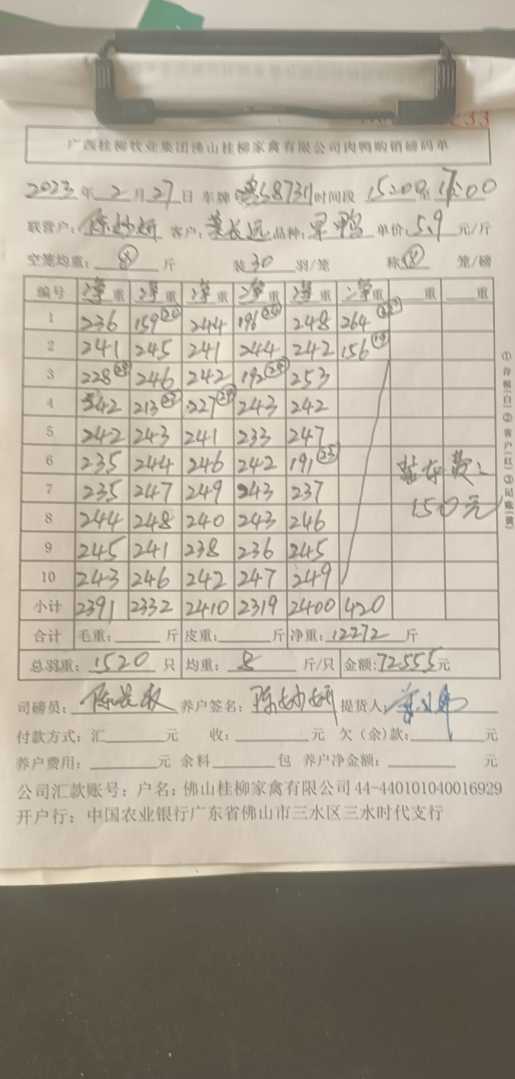 33
广西桂柳牧业集团佛山桂柳家禽有限公司肉鸭购销磅码单
2023年 2月 27日 车牌 S8731 时间段 15:00至 17:00
联营户: 陈妙妍 客户: 长远 品种: 鸭 单价: 5.9 元/斤
空笼均重: 8 斤 装 30 羽/笼 称 8 笼/磅
编号 净重 净重 净重 净重 净重 净重 重 重
1 236 159 244 196 248 264
2 241 245 241 244 242 156
3 228 246 242 192 253
4 242 213 227 243 242
5 242 243 241 233 247
6 235 244 246 242 191
7 235 247 249 243 237
8 244 248 240 243 246
9 245 241 238 236 245
10 243 246 242 247 249
费:
150元
小计 2391 2332 2410 2319 2400 420
合计 毛重: 斤 皮重: 斤 净重: 12272 斤
总羽重: 1520 只 均重: 8 斤/只 金额: 72555元
司磅员: 陈 养户签名: 陈妙妍 提货人
付款方式: 汇 元 收: 元 欠(余)款: 元
养户费用: 元 余料 包 养户净金额: 元
公司汇款账号: 户名: 佛山桂柳家禽有限公司 44-440101040016929
开户行: 中国农业银行广东省佛山市三水区三水时代支行
①存根(白)②客户(红)③记账(黄)